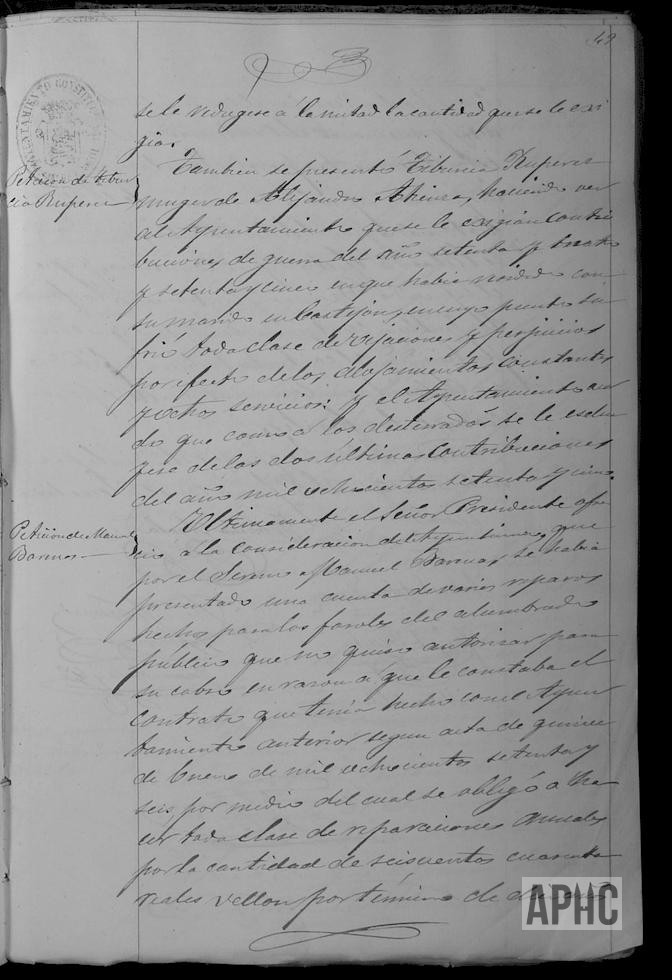 49
AYUNTAMIENTO CONSTITUCIONAL
se le redugese a la mitad la cantidad que se le exi
gia.
Peticion de Tibur
cia Ruperez
Tambien se presentó Tiburcia Ruperez
muger de Alejandro haciendo ver
al Ayuntamiento que se le exigian contri
buciones de guerra del año setenta y cuatro
y setenta y cinco en que habia residido con
su marido en Castejon, en cuyo punto su
frió toda clase de vejaciones y perjuicios
por efecto de los alojamientos constantes
y otros servicios: y el Ayuntamiento acor
do que como a los desterrados se le esclu
yese de las dos últimas contribuciones
del año mil ochocientos setenta y cinco.
Peticion de Manuel
Barnus
Ultimamente el Señor Presidente ofre
cio a la consideracion del Ayuntamiento, que
por el Sereno Manuel Barnus, se habia
presentado una cuenta de varios reparos
hechos para los faroles del alumbrado
público que no quiso autorizar para
su cobro en razon a que le constaba el
contrato que tenia hecho con el Ayun
tamiento anterior segun acta de quince
de Enero de mil ochocientos setenta y
seis por medio del cual se obligó a ha
cer toda clase de reparaciones anuales
por la cantidad de seiscientos cuarenta
reales vellon por término de
APHC